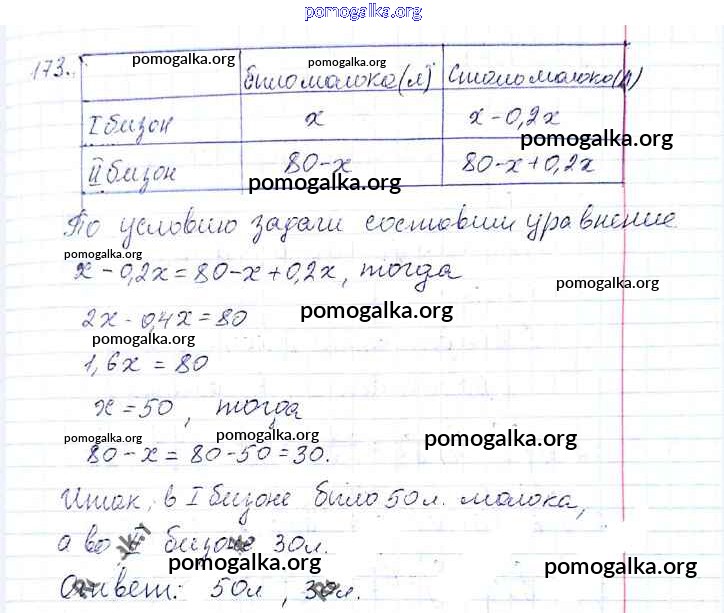 pomogalka.org
173.
pomogalka.org
было молока (л) pomogalka.org
Стало молока (л)
I бизон x x - 0,2x
pomogalka.org
II бизон 80-x 80-x+0,2x
pomogalka.org
По условию задачи составим уравнение
pomogalka.org
x - 0,2x = 80 - x + 0,2x, тогда
pomogalka.org
2x - 0,4x = 80
pomogalka.org
pomogalka.org
1,6x = 80
x = 50, тогда
pomogalka.org pomogalka.org pomogalka.org
80 - x = 80 - 50 = 30.
Итак, в I бизоне было 50 л. молока,
а во II бизоне 30 л.
pomogalka.org pomogalka.org
Ответ: 50 л, 30 л.